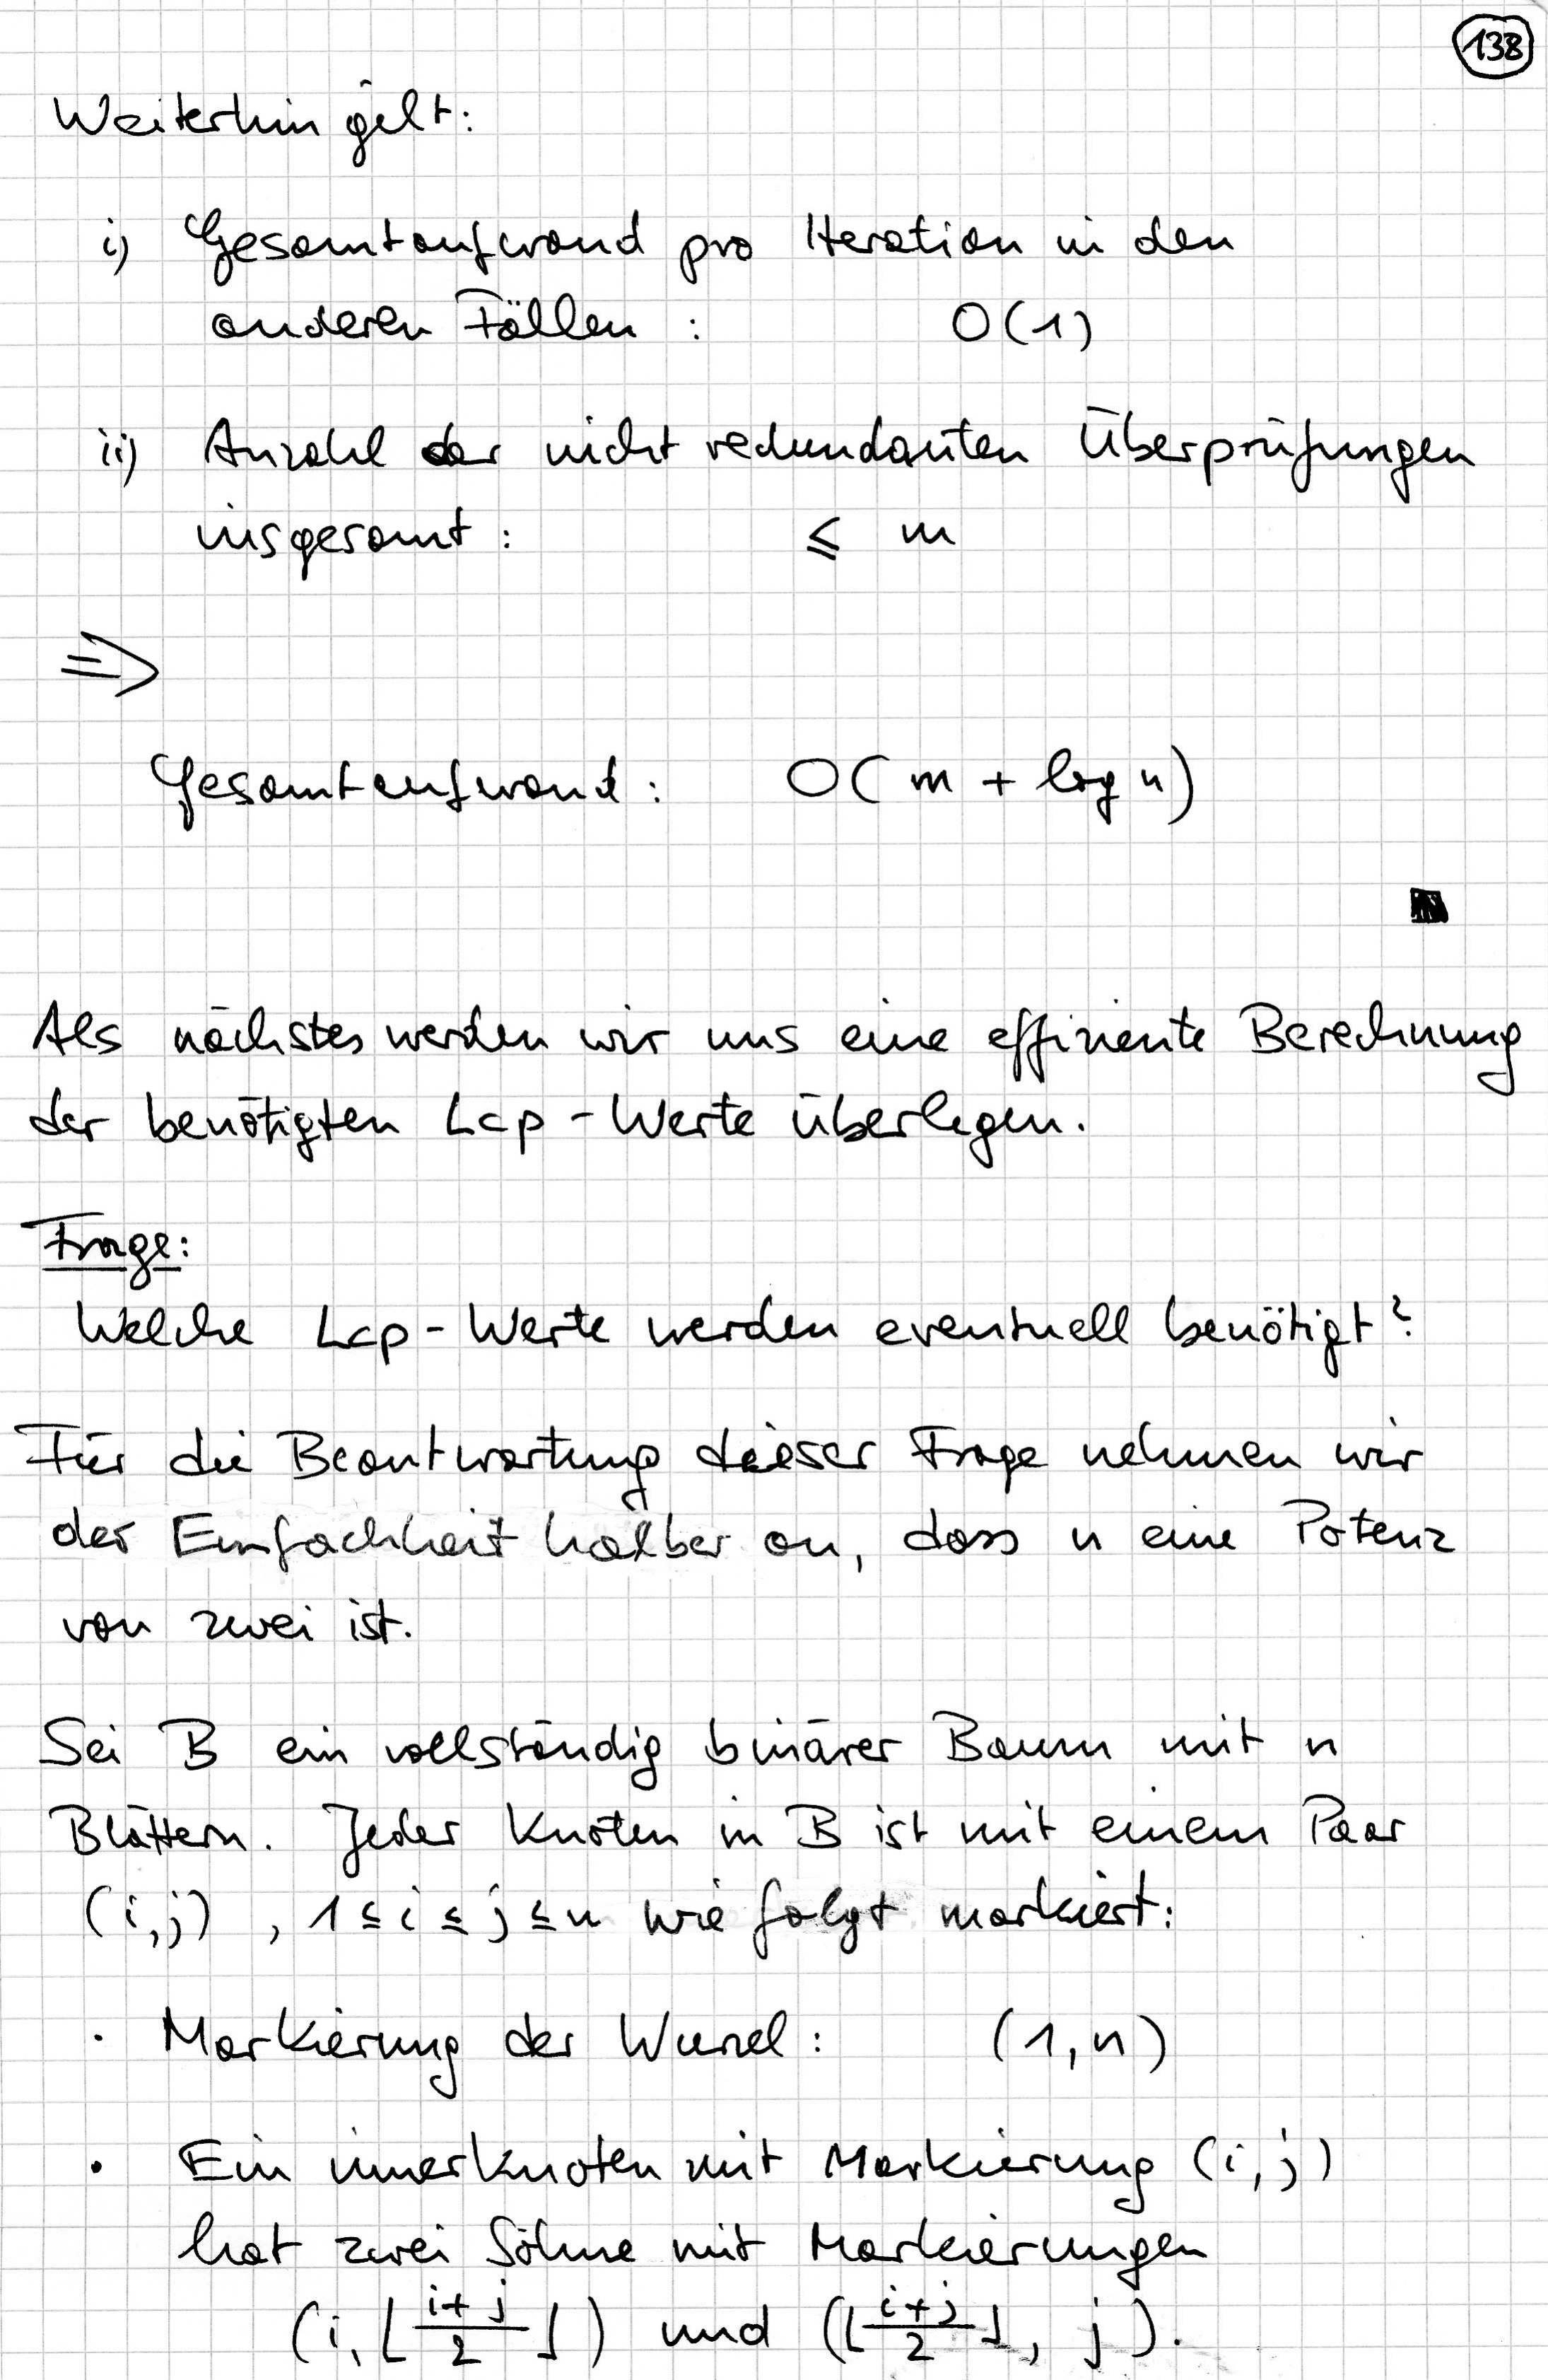 138
Weiterhin gilt:
i) Gesamtaufwand pro Iteration in den
anderen Fällen : O(1)
ii) Anzahl der nicht redundanten Überprüfungen
insgesamt : ≤ m
⇒
Gesamtaufwand : O(m + log n)
Als nächstes werden wir uns eine effiziente Berechnung
der benötigten Lcp-Werte überlegen.
Frage:
Welche Lcp-Werte werden eventuell benötigt?
Für die Beantwortung dieser Frage nehmen wir
der Einfachheit halber an, dass n eine Potenz
von zwei ist.
Sei B ein vollständig binärer Baum mit n
Blättern. Jeder Knoten in B ist mit einem Paar
(i,j) , 1 ≤ i ≤ j ≤ n wie folgt markiert:
· Markierung der Wurzel : (1,n)
• Ein innerKnoten mit Markierung (i,j)
hat zwei Söhne mit Markierungen
(i, ⌊(i+j)/2⌋) und (⌊(i+j)/2⌋, j).